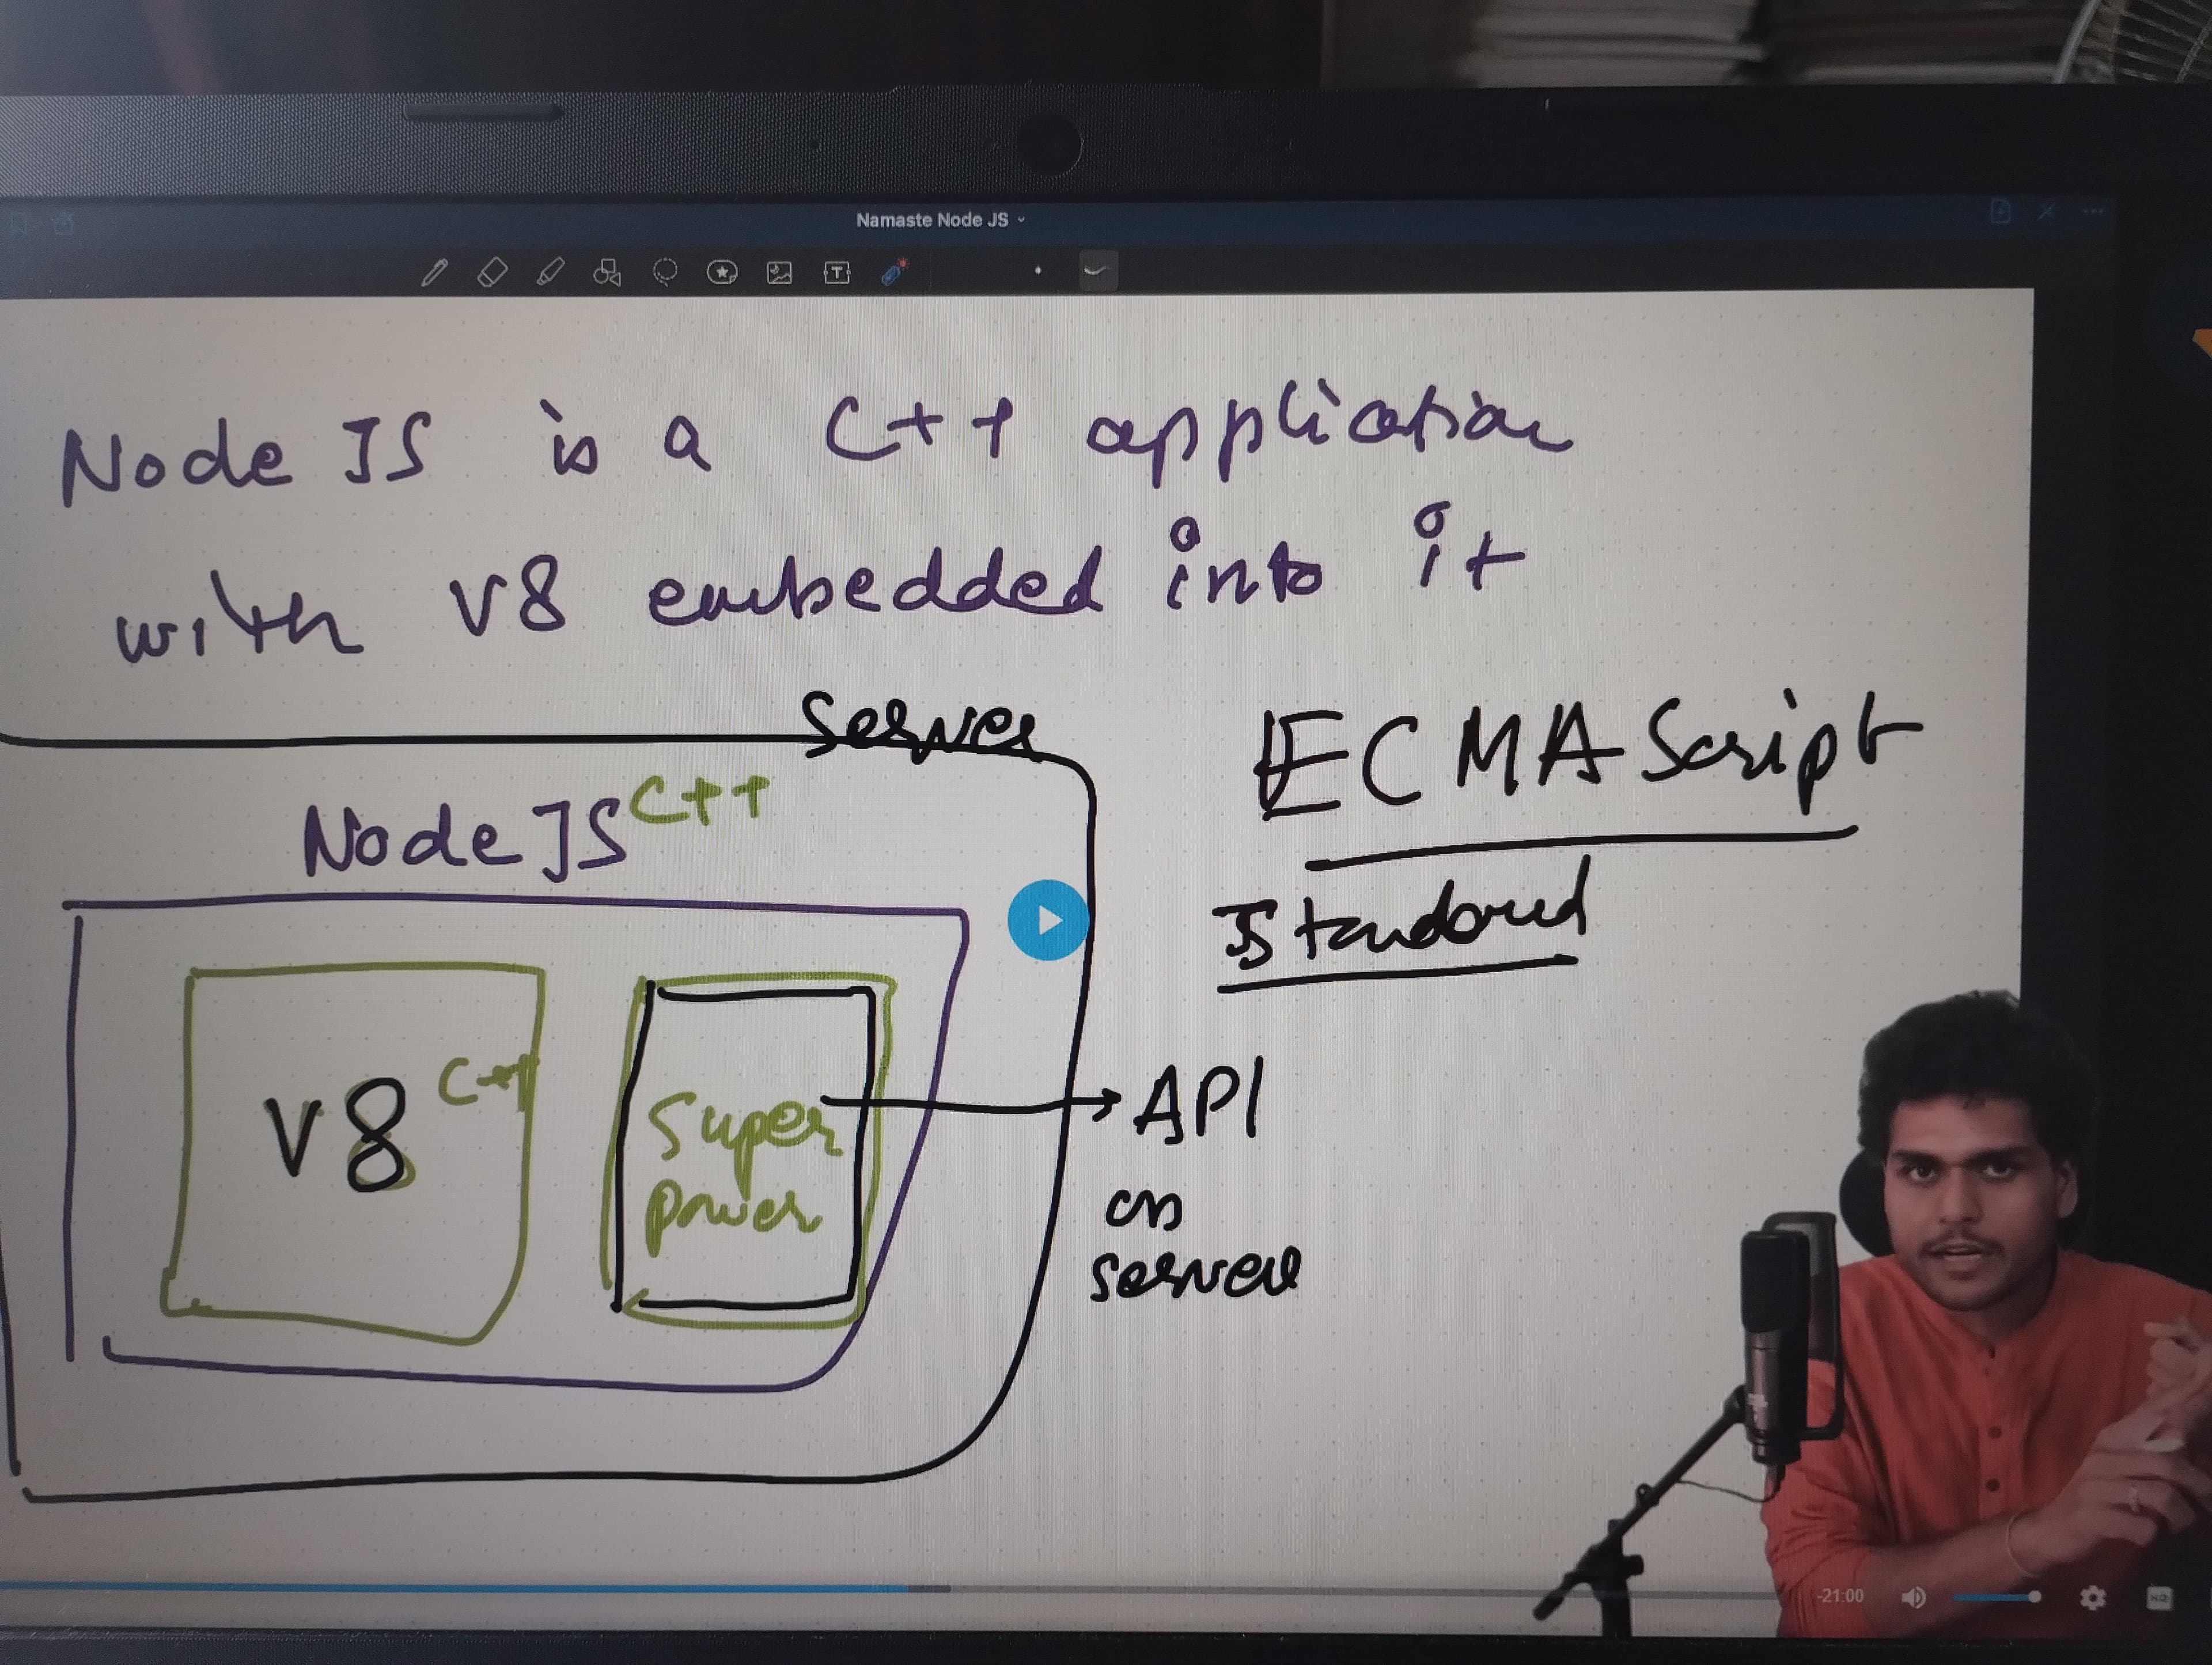 Namaste Node JS
Node JS is a C++ application
with V8 embedded into it
Server
ECMAScript
Node JS C++
JS Standard
V8 C++
Super
power
API
on
server
-21:00
HQ